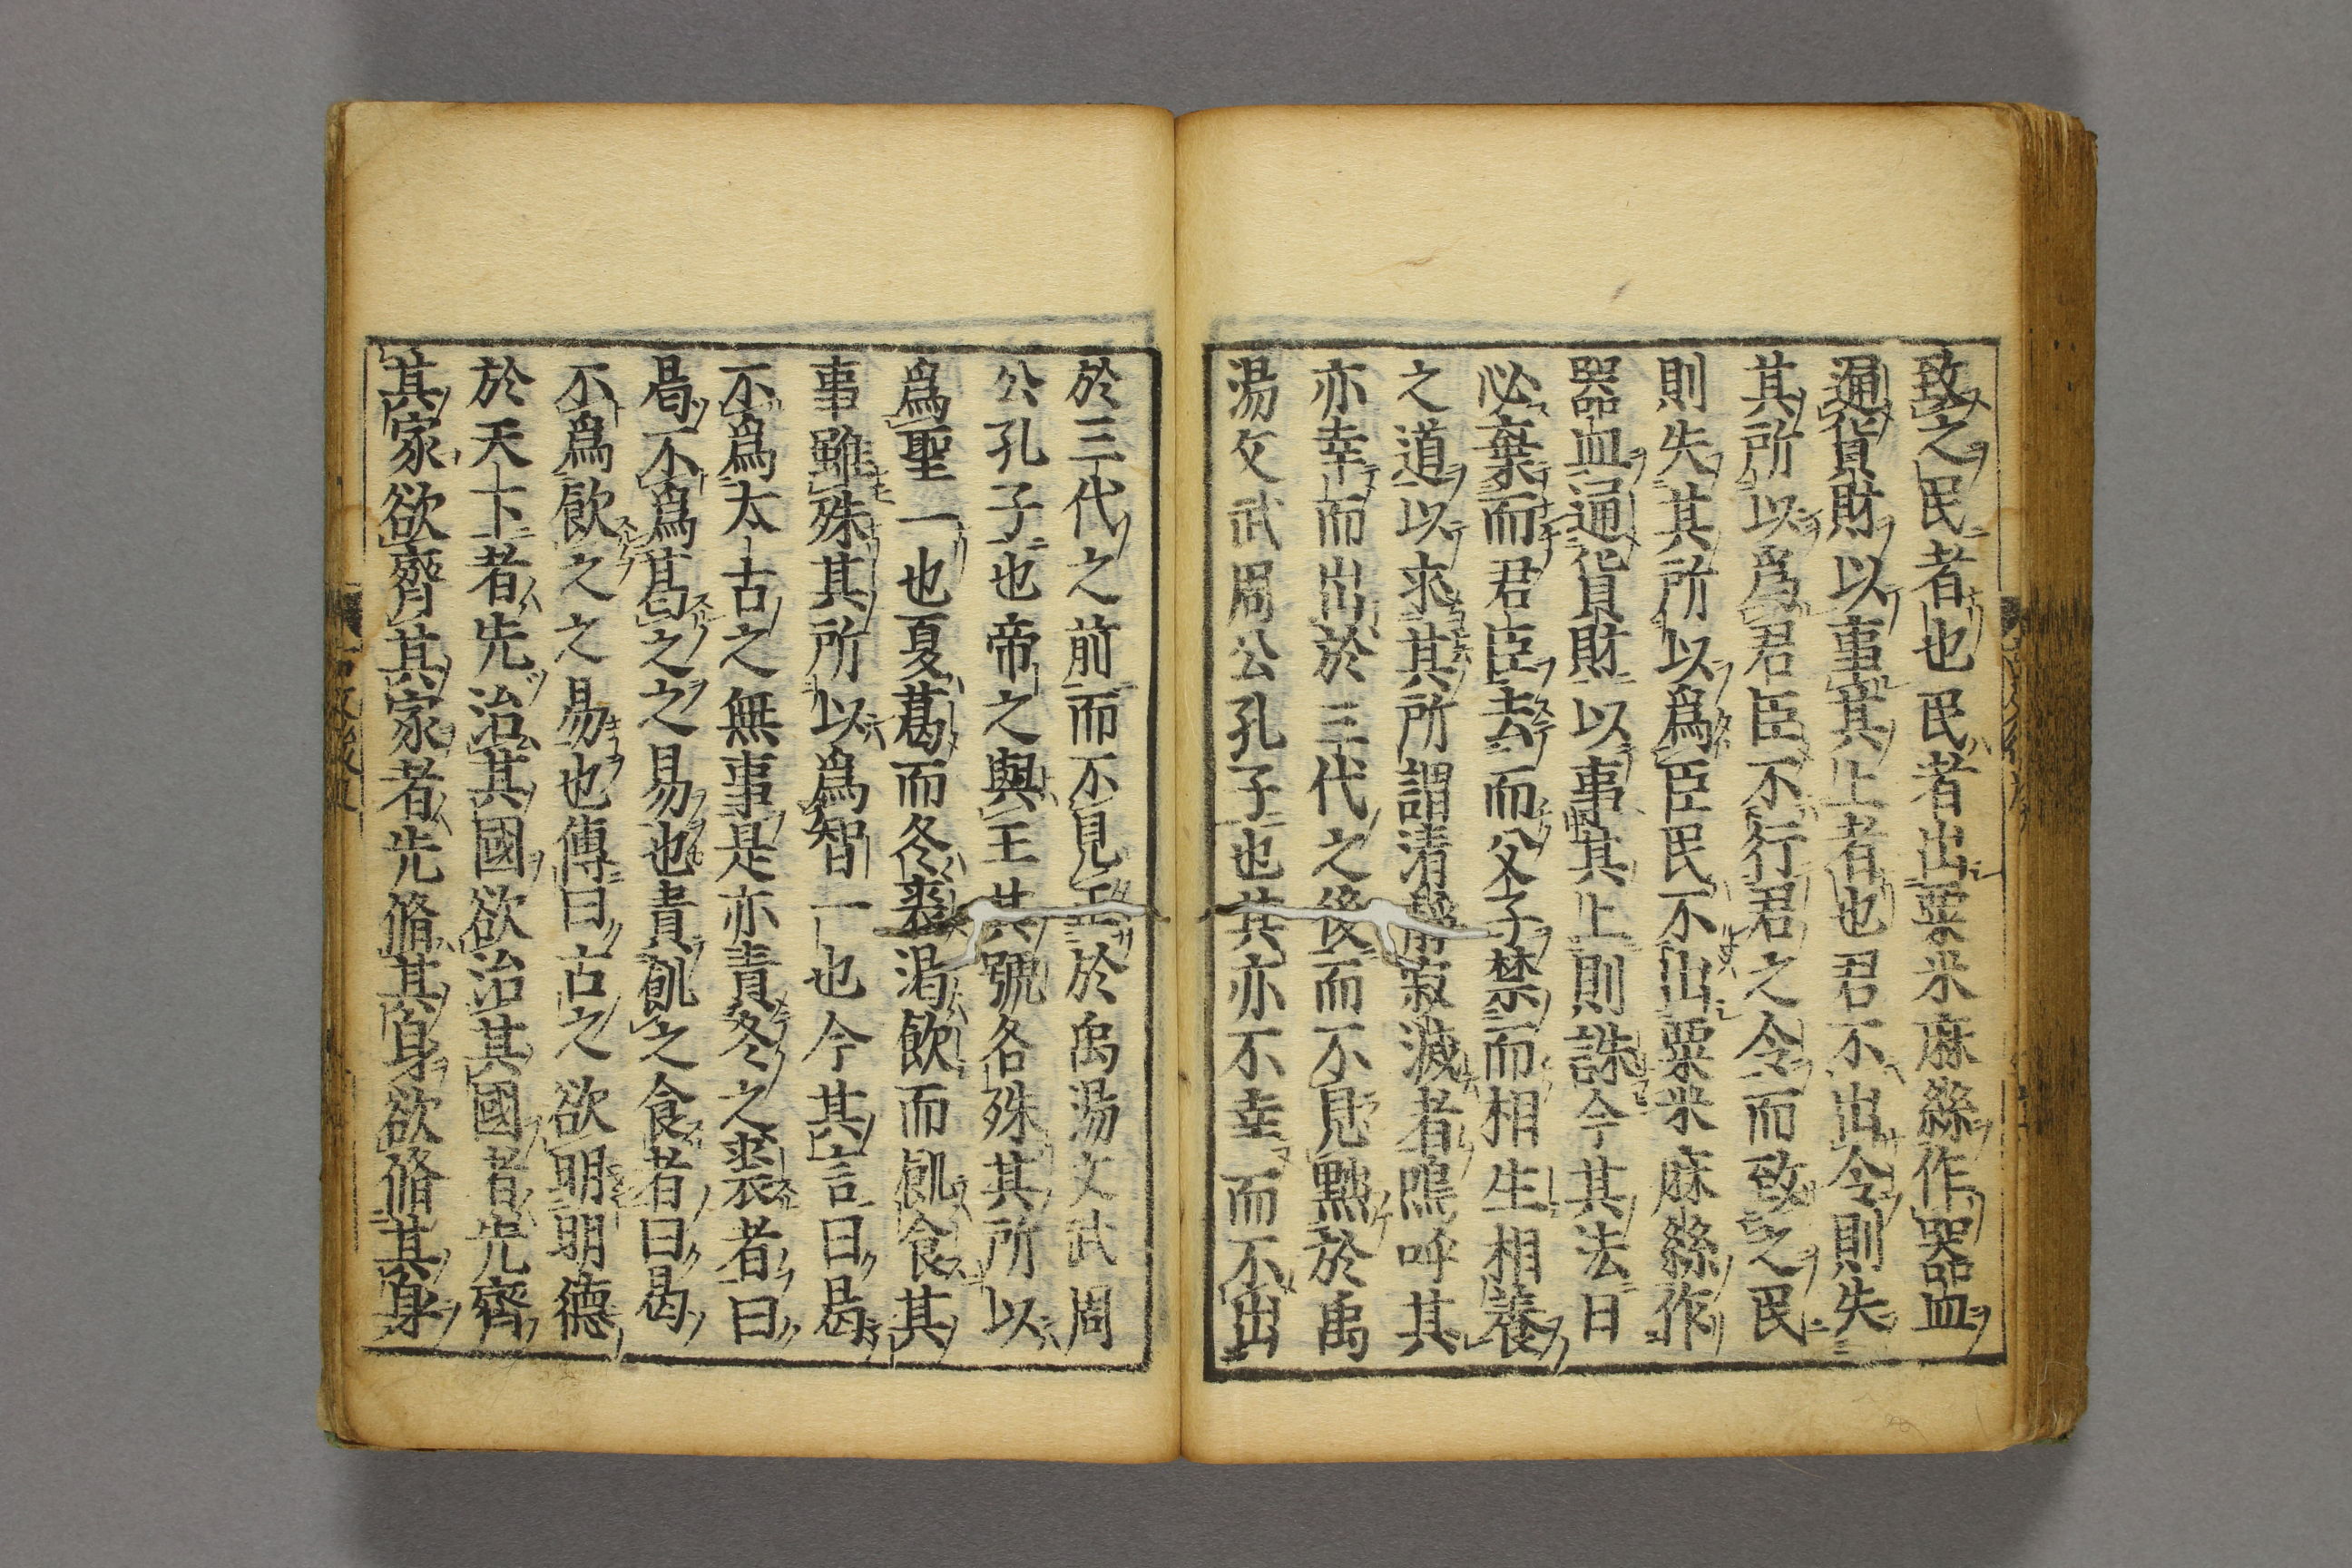 致之民者也民者出粟米麻絲作器皿
通貨財以事其上者也君不出令則失
其所以爲君臣不行君之令而致之民
則失其所以爲臣民不出粟米麻絲作
器皿通貨財以事其上則誅今其法曰
必棄而君臣去而父子禁而相生相養
之道以求其所謂清淨寂滅者嗚呼其
亦幸而出於三代之後而不見黜於禹
湯文武周公孔子也其亦不幸而不出
於三代之前而不見正於禹湯文武周
公孔子也帝之與王其號各殊其所以
爲聖一也夏葛而冬裘渴飲而飢食其
事雖殊其所以爲智一也今其言曰曷
不爲太古之無事是亦責冬之裘者曰
曷不爲葛之之易也責飢之食者曰曷
不爲飲之之易也傳曰古之欲明明德
於天下者先治其國欲治其國者先齊
其家欲齊其家者先脩其身欲脩其身